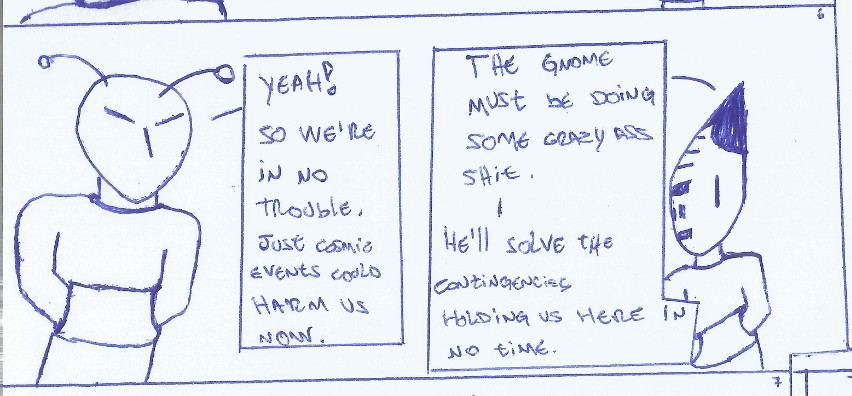 6
YEAH!
SO WE'RE
IN NO
TROUBLE.
JUST COSMIC
EVENTS COULD
HARM US
NOW.
THE GNOME
MUST BE DOING
SOME CRAZY ASS
SHIT.
HE'LL SOLVE THE
CONTINGENCIES
HOLDING US HERE IN
NO TIME.
7